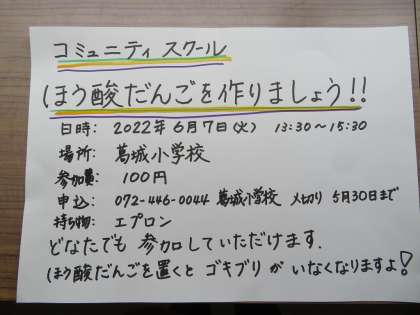 コミュニティ スクール
ほう酸だんごを作りましょう!!
日時: 2022年6月7日(火) 13:30～15:30
場所: 葛城小学校
参加費: 100円
申込: 072-446-0044 葛城小学校 〆切り 5月30日まで
持ち物: エプロン
どなたでも 参加していただけます.
ほう酸だんごを置くと ゴキブリ が いなくなりますよ!